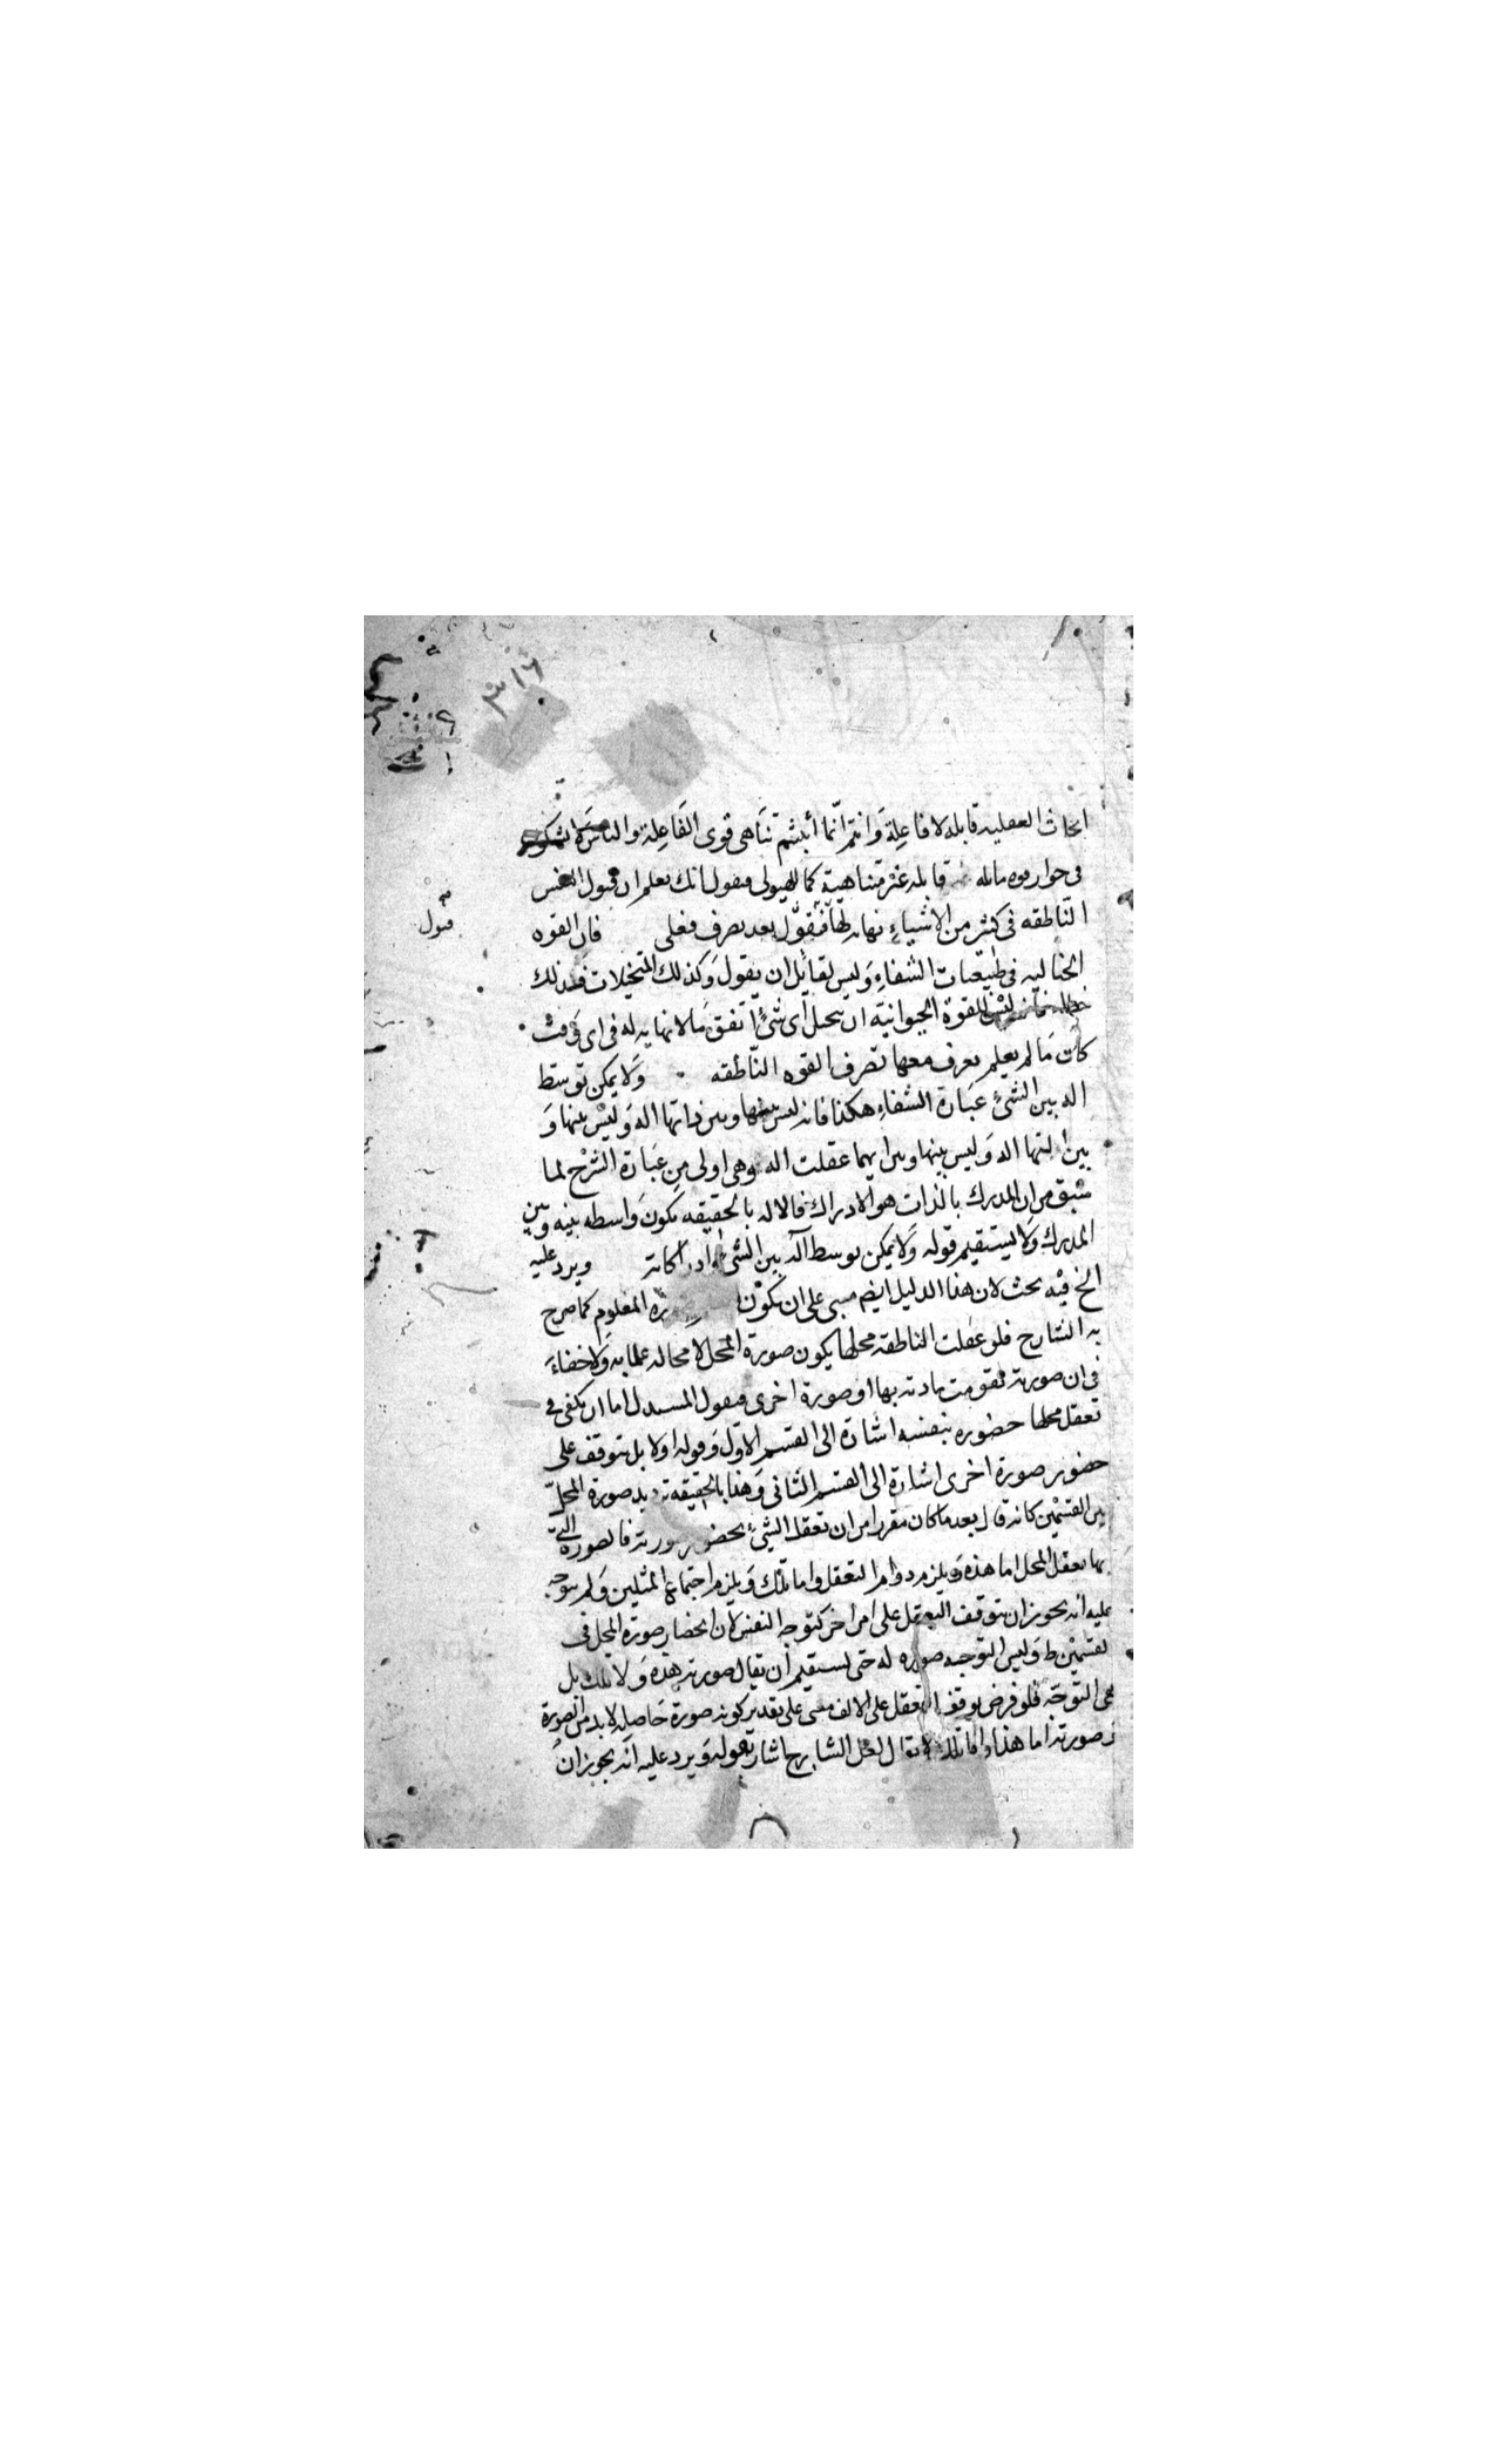 ٣١٦
ابحاث العقليه قابله لا فاعلة وانتم انما أثبتم تناهى قوى الفاعلة والناس لا يشكون
فى جواز قوه قابله غير متناهية كما للهيولى فيقول انك تعلم ان قبول النفس
الناطقه فى كثير من الاشياء نهايه لها فقول بعد تصرف فعلى فان القوه
قبول
الخياليه فى طبيعيات الشفاء وليس لقائل ان يقول وكذلك المتخيلات فذلك
ليس للقوة الحيوانية ان تتخيل اى شئ اتفق مالا نهايه له فى اى وقت
كان مالم يعلم يعرف معها تصرف القوه الناطقه ولا يمكن توسط
اله بين الشئ عبارة الشفاء هكذا فانه ليس بينها وبين ذاتها اله وليس بينها و
بين التها اله وليس بينها وبين انها عقلت اله وهى اولى من عبارة الشرح لما
سبق من ان المدرك بالذات هو الادراك فالاله بالحقيقه تكون واسطه بينه وبين
المدرك ولا يستقيم قوله ولا يمكن توسط اله بين الشئ وادراكاته ويرد عليه
الخ فيه بحث لان هذا الدليل ايضا مبنى على ان يكون المعلوم كما صرح
به الشارح فلو عقلت الناطقه محلها يكون صورة المحل لا محاله علما به ولا خفاء
فى ان صورته تقومت مادته بها او صورة اخرى فيقول المستدل اما ان يكفى فى
تعقل محلها حضوره بنفسه اشارة الى القسم الاول وقوله اولا بل يتوقف على
حضور صورة اخرى اشارة الى القسم الثانى وهذا بالحقيقه ترديد صورة المحل
بين القسمين كانه قال بعد ما كان مقررا من ان تعقل الشئ بحضور صورته فالصورة التى
بها تعقل المحل اما هذه ويلزم دوام التعقل واما تلك ويلزم اجتماع المثلين ولم يتوجه
عليه انه يجوز ان يتوقف التعقل على امر اخر كتوجه النفس لان انحصار صورة المحل فى
لقسمين ط وليس التوجه صوره له حتى يستقيم ان يقال صورته هذه ولا تلك بل
هى التوجه فلو فرض توقف التعقل على الالف مبنى على تقدير كونه صورة حاصله لابد من الصورة
صورته اما هذا واما تلك لا يقال لعل الشارح اشار بقوله ويرد عليه انه يجوز ان